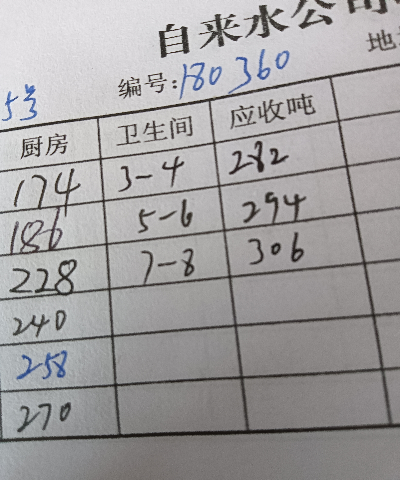 自来水公司
5号 编号:180360 地
厨房 卫生间 应收吨
174 3-4 282
186 5-6 294
228 7-8 306
240
258
270